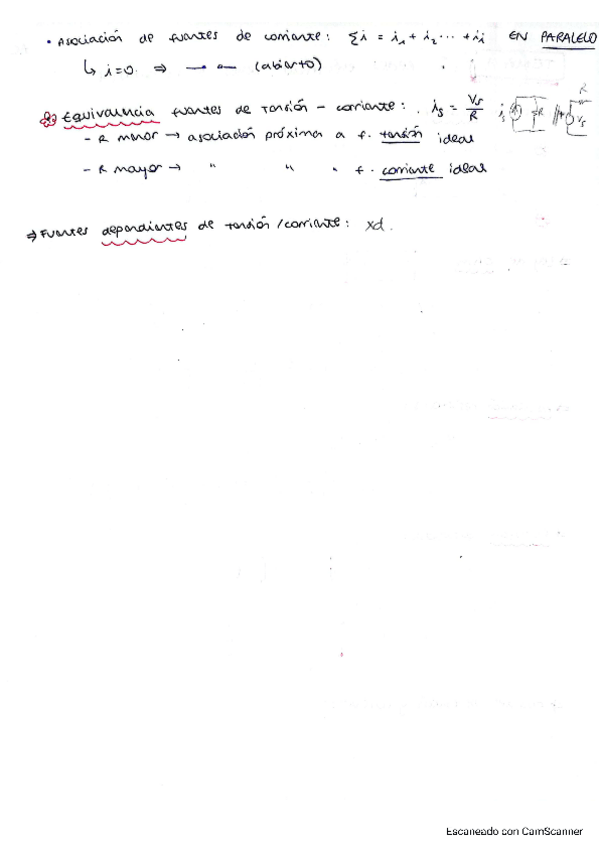 • Asociación de fuentes de corriente: Σi = i₁ + i₂ ... + iᵢ EN PARALELO
↳ i=0 ⇒ (abierto)
Equivalencia fuentes de tensión - corriente: is = Vs/R is R R Vs
- R menor → asociación próxima a f. tensión ideal
- R mayor → " " " f. corriente ideal
⇒ Fuentes dependientes de tensión/corriente: xd.
Escaneado con CamScanner